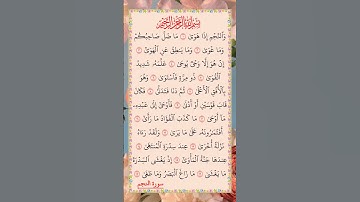 بِسْمِ اللَّهِ الرَّحْمَٰنِ الرَّحِيمِ
وَٱلنَّجْمِ إِذَا هَوَىٰ ۝ مَا ضَلَّ صَاحِبُكُمْ
وَمَا غَوَىٰ ۝ وَمَا يَنطِقُ عَنِ ٱلْهَوَىٰٓ ۝
إِنْ هُوَ إِلَّا وَحْىٌ يُوحَىٰ ۝ عَلَّمَهُۥ شَدِيدُ
ٱلْقُوَىٰ ۝ ذُو مِرَّةٍ فَٱسْتَوَىٰ ۝ وَهُوَ
بِٱلْأُفُقِ ٱلْأَعْلَىٰ ۝ ثُمَّ دَنَا فَتَدَلَّىٰ ۝ فَكَانَ
قَابَ قَوْسَيْنِ أَوْ أَدْنَىٰ ۝ فَأَوْحَىٰٓ إِلَىٰ عَبْدِهِۦ
مَآ أَوْحَىٰ ۝ مَا كَذَبَ ٱلْفُؤَادُ مَا رَأَىٰٓ ۝
أَفَتُمَٰرُونَهُۥ عَلَىٰ مَا يَرَىٰ ۝ وَلَقَدْ رَءَاهُ
نَزْلَةً أُخْرَىٰ ۝ عِندَ سِدْرَةِ ٱلْمُنتَهَىٰ ۝
عِندَهَا جَنَّةُ ٱلْمَأْوَىٰٓ ۝ إِذْ يَغْشَى ٱلسِّدْرَةَ
مَا يَغْشَىٰ ۝ مَا زَاغَ ٱلْبَصَرُ وَمَا طَغَىٰ ۝
سورة النجم